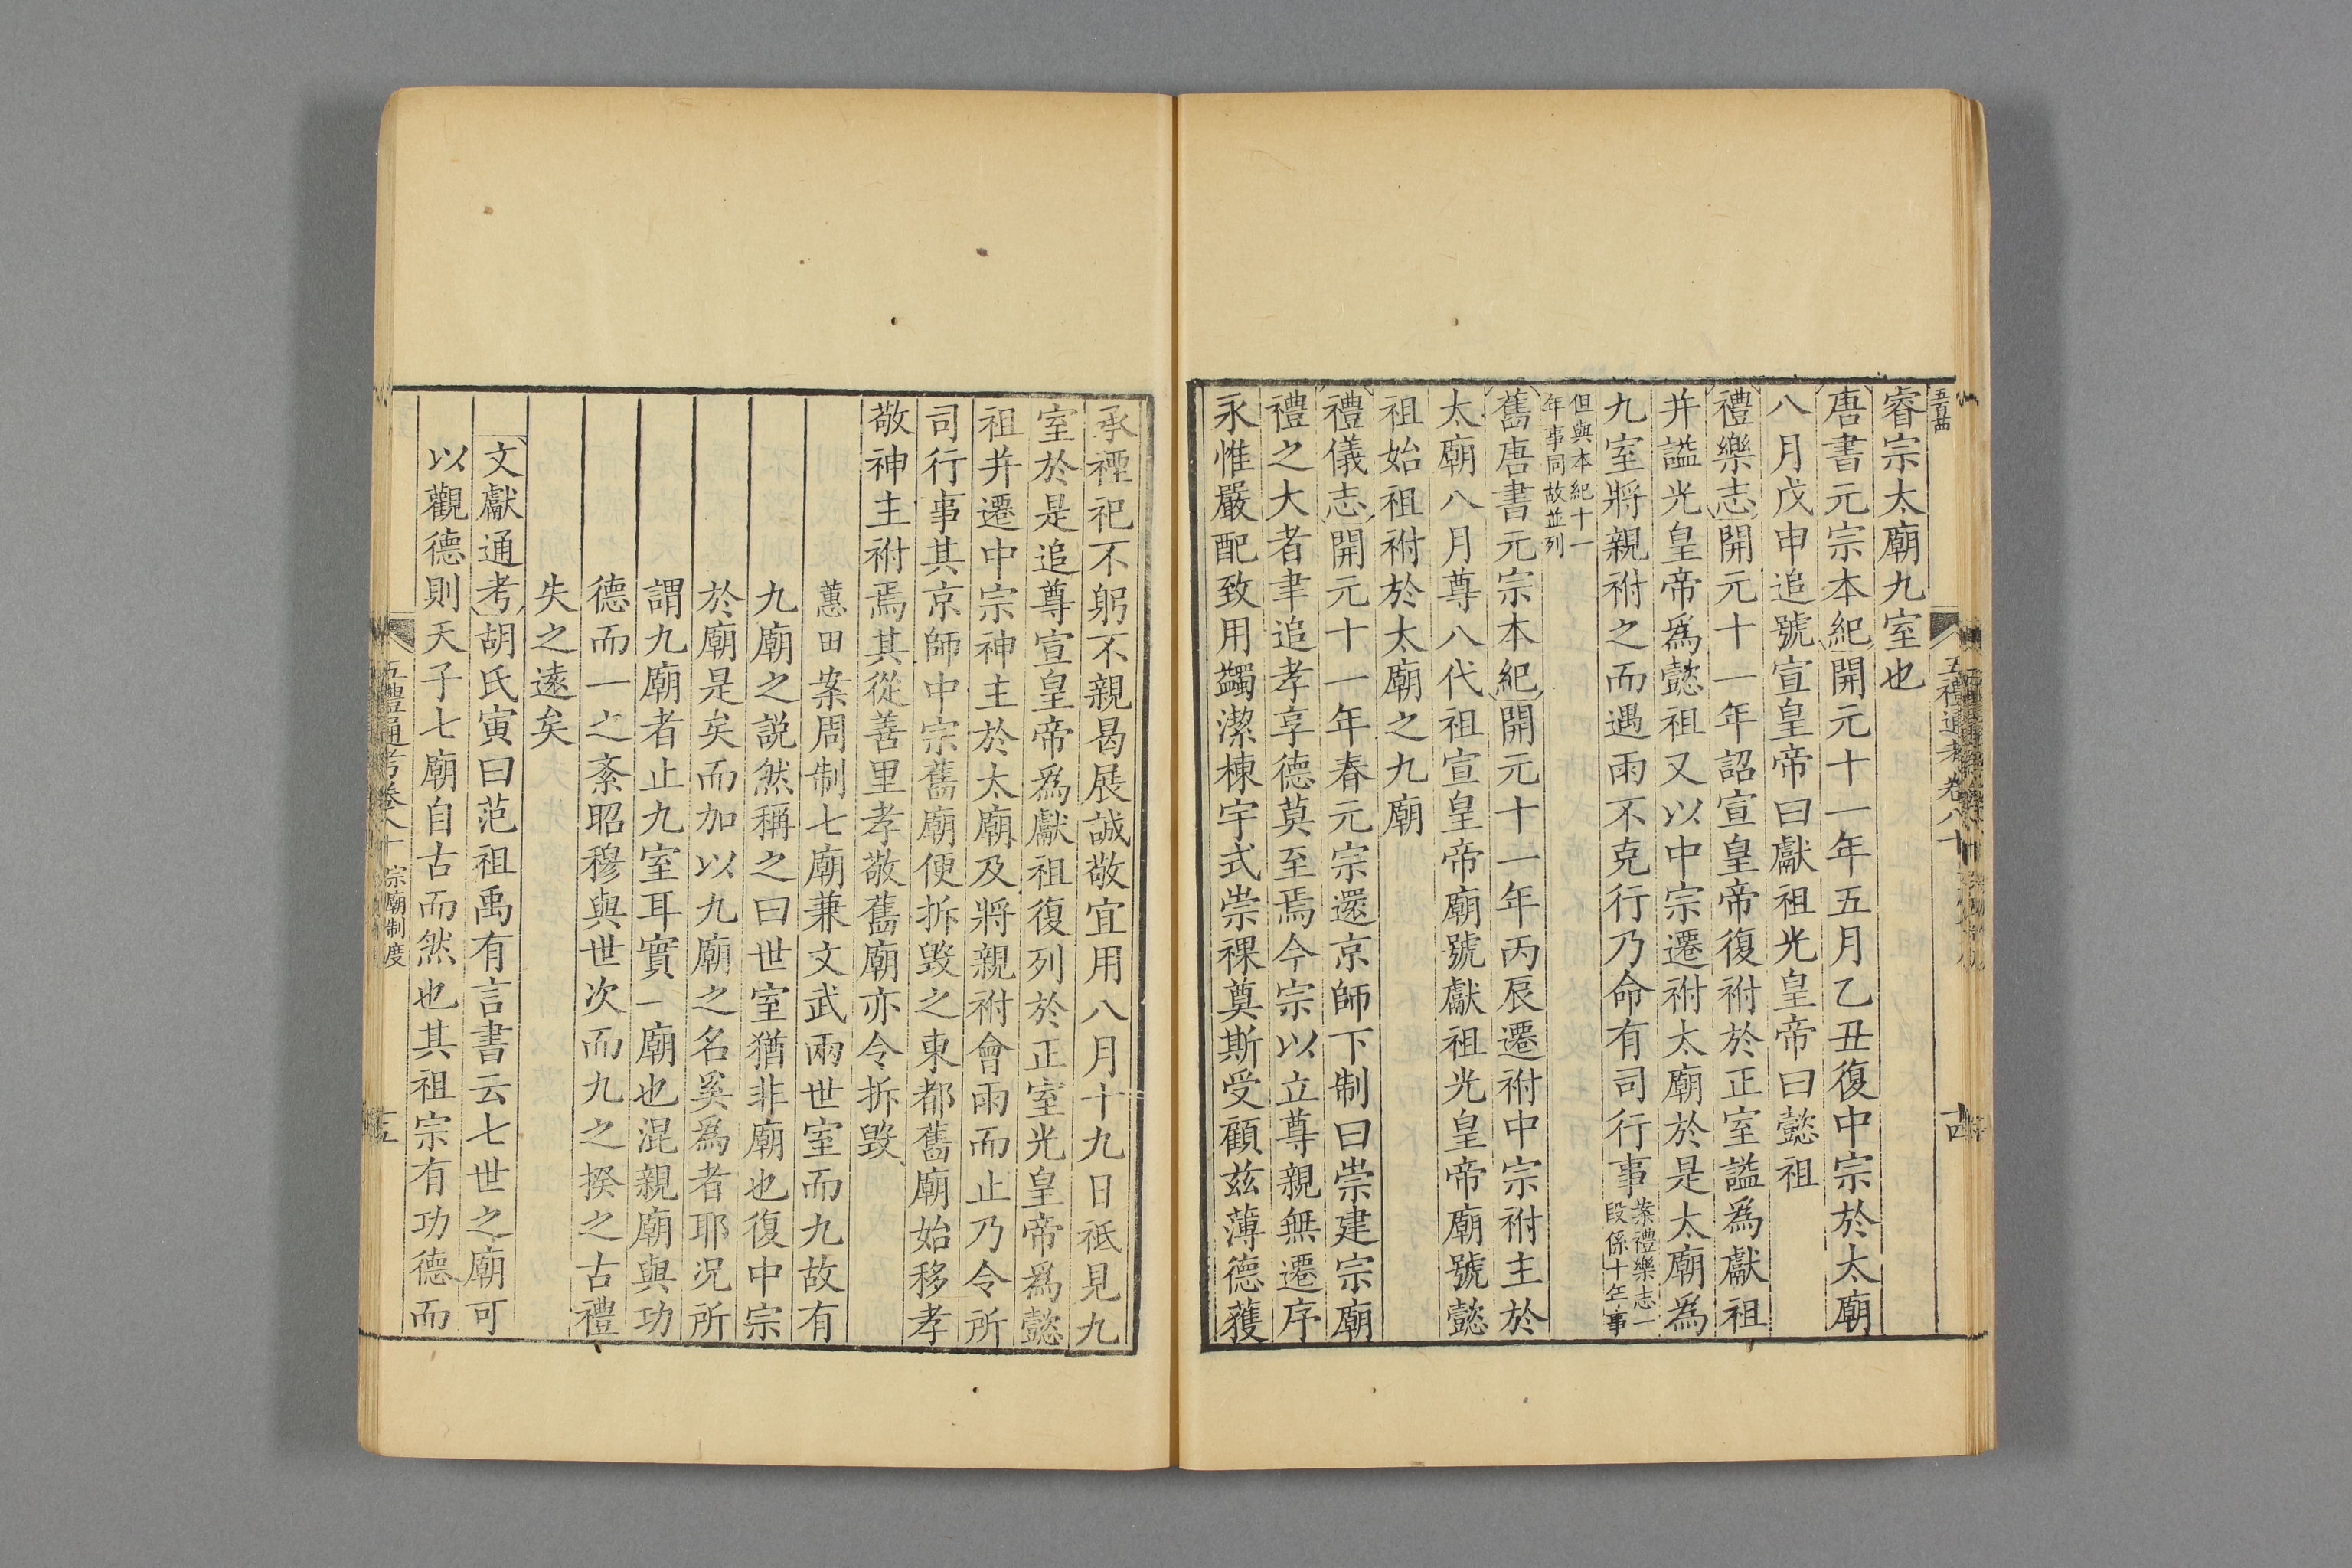 五禮通考卷八十
睿宗太廟九室也
唐書元宗本紀開元十一年五月乙丑復中宗於太廟
八月戊申追號宣皇帝曰獻祖光皇帝曰懿祖
禮樂志開元十一年詔宣皇帝復祔於正室諡爲獻祖
并諡光皇帝爲懿祖又以中宗還祔太廟於是太廟爲
九室將親祔之而遇雨不克行乃命有司行事案禮樂志一段係十年事
但與本紀十一年事同故並列
舊唐書元宗本紀開元十一年丙辰遷祔中宗祔主於
太廟八月尊八代祖宣皇帝廟號獻祖光皇帝廟號懿
祖始祖祔於太廟之九廟
禮儀志開元十一年春元宗還京師下制曰崇建宗廟
禮之大者聿追孝享德莫至焉今宗以立尊親無遷序
永惟嚴配致用蠲潔棟宇式崇祼奠斯受顧茲薄德獲
承禋祀不躬不親曷展誠敬宜用八月十九日祗見九
室於是追尊宣皇帝爲獻祖復列於正室光皇帝爲懿
祖并遷中宗神主於太廟及將親祔會雨而止乃令所
司行事其京師中宗舊廟便拆毀之東都舊廟始移孝
敬神主祔焉其從善里孝敬舊廟亦令拆毀
蕙田案周制七廟兼文武兩世室而九故有
九廟之説然稱之曰世室猶非廟也復中宗
於廟是矣而加以九廟之名奚爲者耶況所
謂九廟者止九室耳實一廟也混親廟與功
德而一之紊昭穆與世次而九之揆之古禮
失之遠矣
文獻通考胡氏寅曰范祖禹有言書云七世之廟可
以觀德則天子七廟自古而然也其祖宗有功德而
五禮通考卷八十 宗廟制度